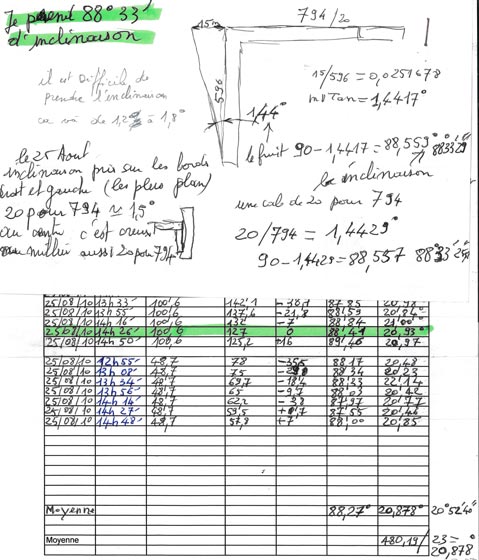 Je prend 88° 33'
d'inclinaison
15
794/20
596
il est difficile de
prendre l'inclinaison
ca va de 1,2° à 1,8°
15/596 = 0,0251678
inv Tan = 1,4417°
1,44°
le fruit 90-1,4417 = 88,559° 88°33'29
l'inclinaison
le 25 Aout
inclinaison pris sur les bords
droit et gauche (les plus plan)
20 pour 794 ≃ 1,5°
au centre c'est creux
au milieu aussi 20 pour 794
une cale de 20 pour 794
20/794 = 1,4429°
90-1,4429 = 88,557 88°33'25
25/08/10 13h33 100,6 142,1 87,85 20,98
25/08/10 13h55 100,6 137,6 -21,8 88,59 20,84°
25/08/10 14h16 100,6 132 -7 88,84 21,00°
25/08/10 14h26' 100,6 127 0 88,41 20,93°
25/08/10 14h50 100,6 125,2 +16 89,46 20,97
25/08/10 12h55' 48,7 78 88,17 20,48
25/08/10 13h08' 48,7 75 88,34 20,23
25/08/10 13h34' 48,7 69,7 -18,4 88,33
25/08/10 13h56' 48,7 65 -9,7 88,03 20,42
25/08/10 14h14' 48,7 62,2 87,97 20,77
25/08/10 14h27' 48,7 59,5 87,55 20,44
25/08/10 14h48' 48,7 57,8 +7 88,00 20,85
Moyenne 88,27° 20,878° 20°52'40"
Moyenne 480,19/23 =
20,878